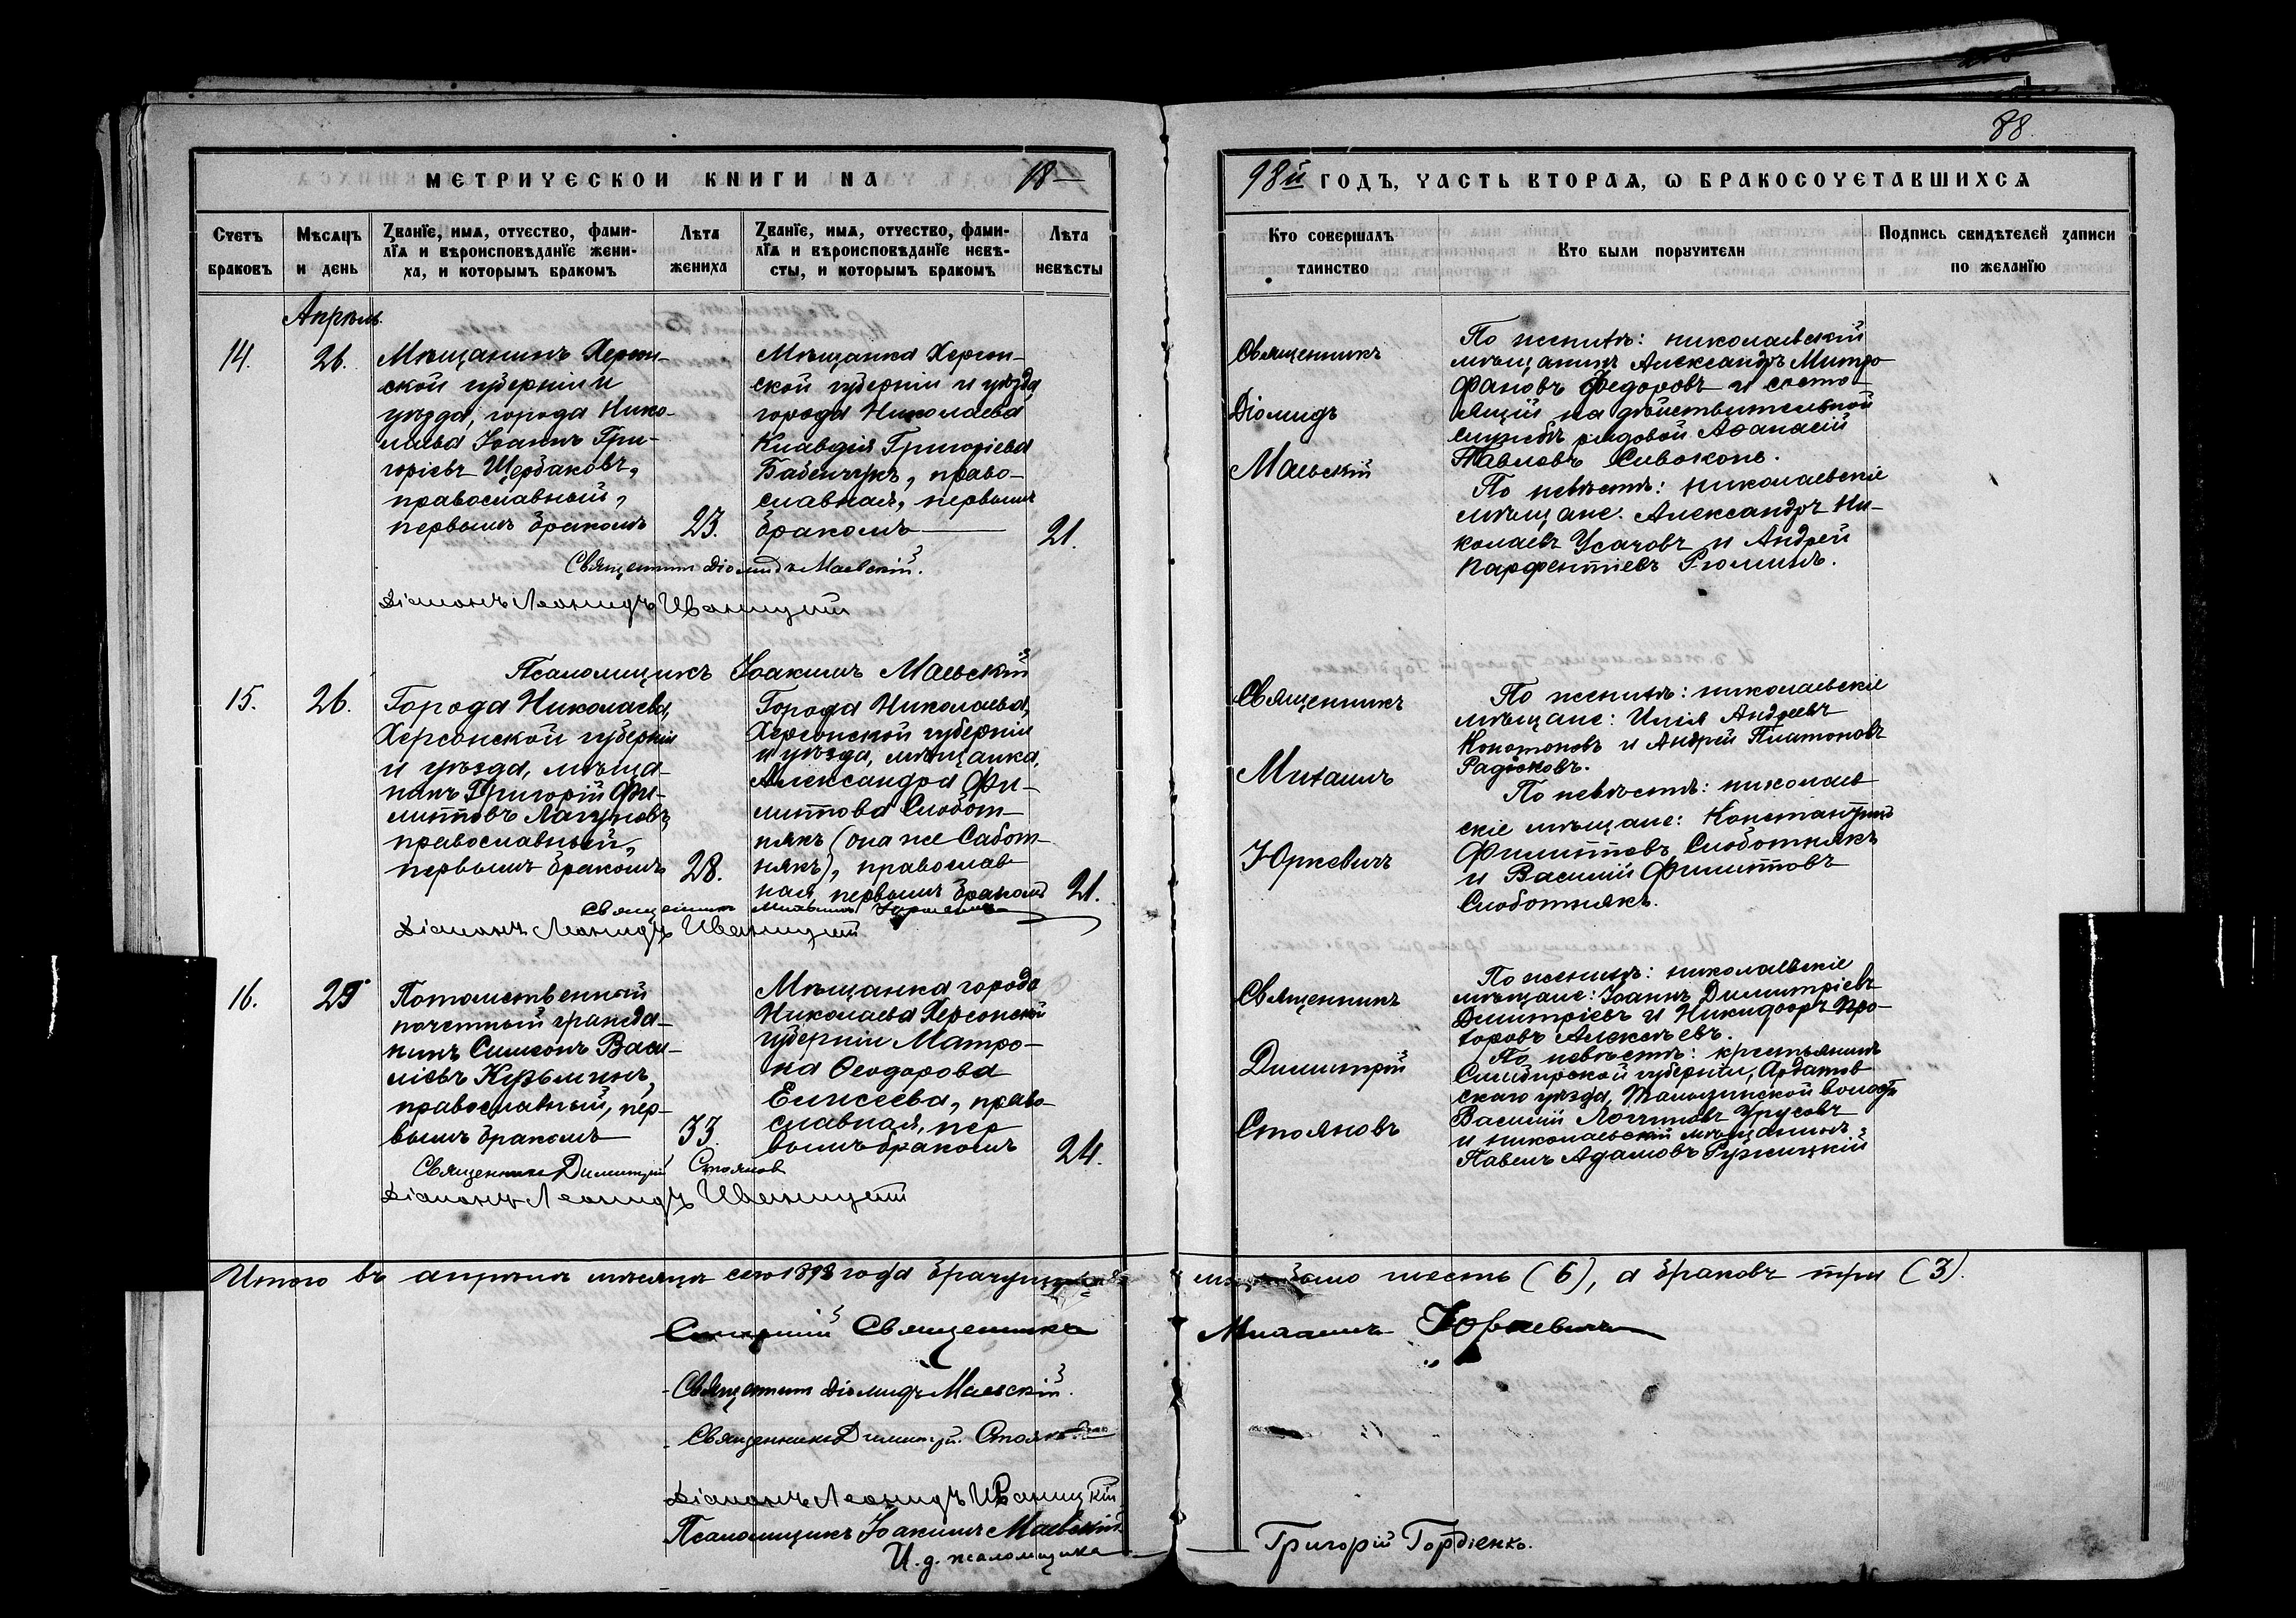 88.
МЕТРИЧЕСКОИ КНИГИ НА 18
98й ГОДЪ, ЧАСТЬ ВТОРАѦ, Ѡ БРАКОСОЧЕТАВШИХСѦ
Счетъ браковъ
Мѣсѧцъ и день
Званїе, имѧ, отчество, фами-
лїѧ и вѣроисповѣданїе жени-
ха, и которымъ бракомъ
Лѣта жениха
Званїе, имѧ, отчество, фами-
лїѧ и вѣроисповѣданїе невѣ-
сты, и которымъ бракомъ
Лѣта невѣсты
Кто совершалъ таинство
Кто были порꙋчители
Подпись свидѣтелей записи
по желанїю
Апрѣль.
14.
26.
Мѣщанинъ Херсон-
ской губерніи и
уѣзда, города Нико-
лаева Іоаннъ Гри-
горіевъ Щербаковъ,
православный,
первымъ бракомъ
23.
Мѣщанка Херсон-
ской губерніи и уѣзда,
города Николаева
Клавдія Григоріева
Бабенчукъ, право-
славная, первымъ
бракомъ
21.
Священникъ
Діомидъ
Маевскій
По женихѣ: николаевскій
мѣщанинъ Александръ Митро-
фановъ Федоровъ и состо-
ящій на дѣйствительной
службѣ рядовой Аѳанасій
Павловъ Сивоконь.
По невѣстѣ: николаевскіе
мѣщане: Александръ Ни-
колаевъ Усачовъ и Андрей
Парфентіевъ Рюминъ.
Священникъ Діомидъ Маевскій.
Діаконъ Леонидъ Иваницкій
Псаломщикъ Іоакимъ Маевскій
15.
26.
Города Николаева,
Херсонской губерніи
и уѣзда, мѣща-
нинъ Григорій Фи-
липповъ Лагуновъ,
православный,
первымъ бракомъ
28.
Города Николаева,
Херсонской губерніи
и уѣзда, мѣщанка,
Александра Фи-
липпова Слобот-
някъ (она же Сабот-
някъ), православ-
ная, первымъ бракомъ
21.
Священникъ
Михаилъ
Юркевичъ
По женихѣ: николаевскіе
мѣщане: Илія Андреевъ
Конотоповъ и Андрей Платоновъ
Радіоновъ.
По невѣстѣ: николаев-
скіе мѣщане: Константинъ
Филипповъ Слоботнякъ
и Василій Филипповъ
Слоботнякъ.
Священникъ Михаилъ Юркевичъ
Діаконъ Леонидъ Иваницкій
16.
29
Потомственный
почетный гражда-
нинъ Симеонъ Васи-
ліевъ Кузьминъ,
православный, пер-
вымъ бракомъ
33.
Мѣщанка города
Николаева Херсонской
губерніи Матро-
на Ѳеодорова
Елисеева, право-
славная, пер-
вымъ бракомъ
24.
Священникъ
Димитрій
Стояновъ
По женихѣ: николаевскіе
мѣщане: Іоаннъ Димитріевъ
Димитріевъ и Никифоръ Про-
хоровъ Алексѣевъ.
По невѣстѣ: крестьянинъ
Симбирской губерніи, Ардатов-
скаго уѣзда, волости
Василій Логиновъ Урусовъ
и николаевскій мѣщанинъ
Павелъ Адамовъ Ружицкій
Священникъ Димитрій Стоянов
Діаконъ Леонидъ Иваницкій
Итого въ апрѣлѣ мѣсяцѣ сего 1898 года было шесть (6), а браковъ три (3).
Старшій Священникъ Михаилъ Юркевичъ
Священникъ Діомидъ Маевскій.
Священникъ Димитрій Стоянов
Діаконъ Леонидъ Иваницкій
Псаломщикъ Іоакимъ Маевскій
И. д. псаломщика Григорій Гордіенко.